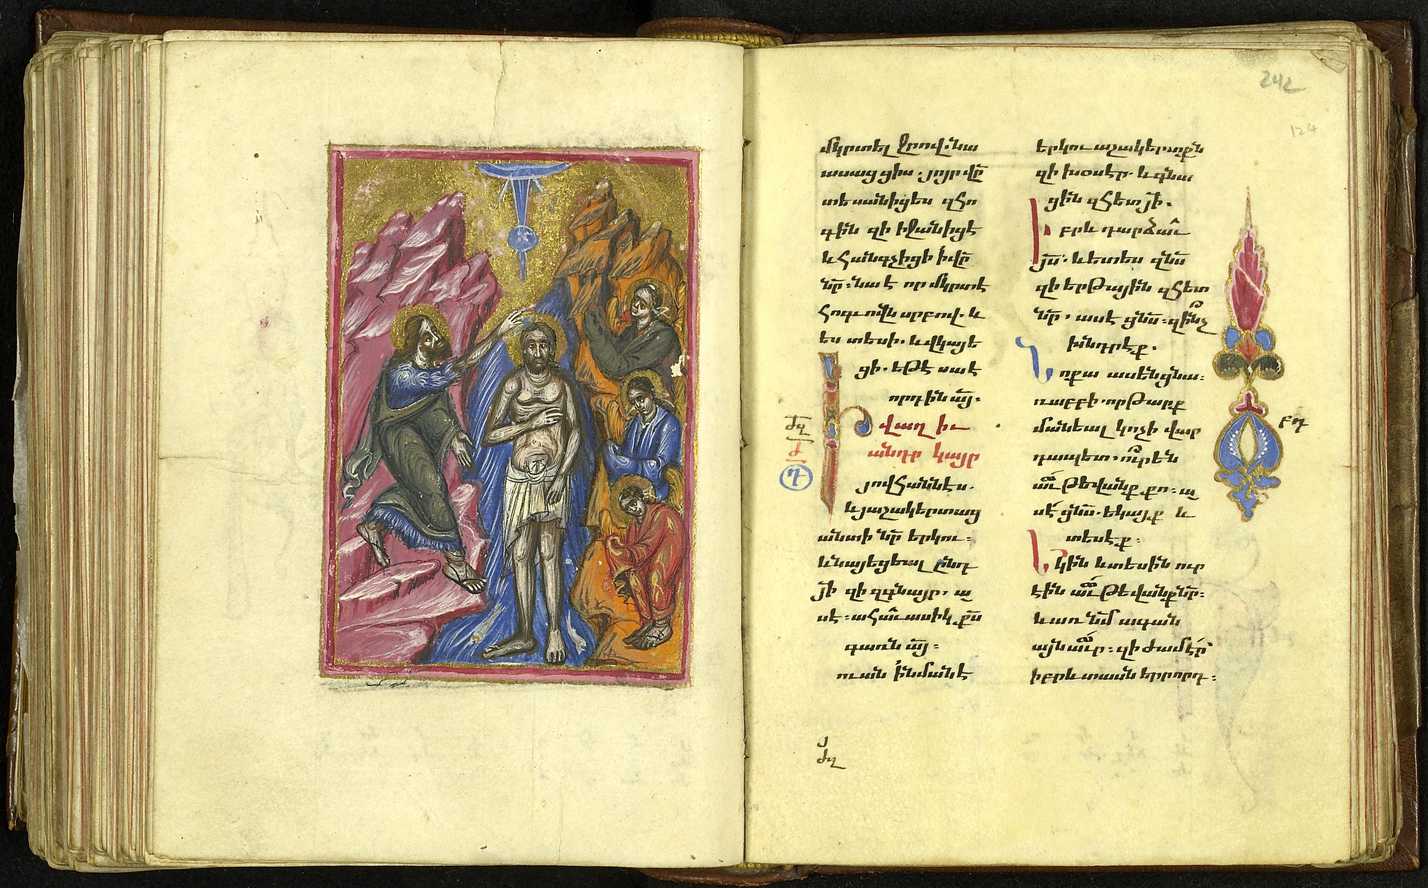 242
124
մկրտել ջրով. նա
ասաց ցիս. յոյր վր̃
տեսանիցես զհո
գին զի իջանիցէ
և հանգչիցի ի վր̃
նր̃: նա է որ մկրտէ
հոգւովն սրբով. և
ես տեսի. և վկայե
ցի. եթէ սա է
որդին ա̃յ.
Ի վաղ իւ
անդր կայր
յովհաննէս.
և յաշակերտաց
անտի նր̃ երկու:
և նայեցեալ ընդ
յի̃ զի զգնայր. ա
սէ: ահաւասիկ քս̃
գառն ա̃յ:
ուան ի նմանէ
երկու աշակերտքն
զի խօսէր. և գնա
ցին զհետ յի̃.
Իբրև դարձաւ
յս̃. և ետես զնս̃
զի երթային զհետ
նր̃. ասէ ցնս̃: զինչ
խնդրէք.
Նոքա ասեն ցնա:
ռաբբի. որ թարգ
մանեալ կոչի վար
դապետ. ուր են
աւթեվանք քո: ա
սէ ցնս̃. եկայք և
տեսէք:
Եկին և տեսին ուր
էին աւթեվանք նր̃:
և առ նմ̃ ագան
այն աւր: զի ժամ էր
իբրև տասներորդ: